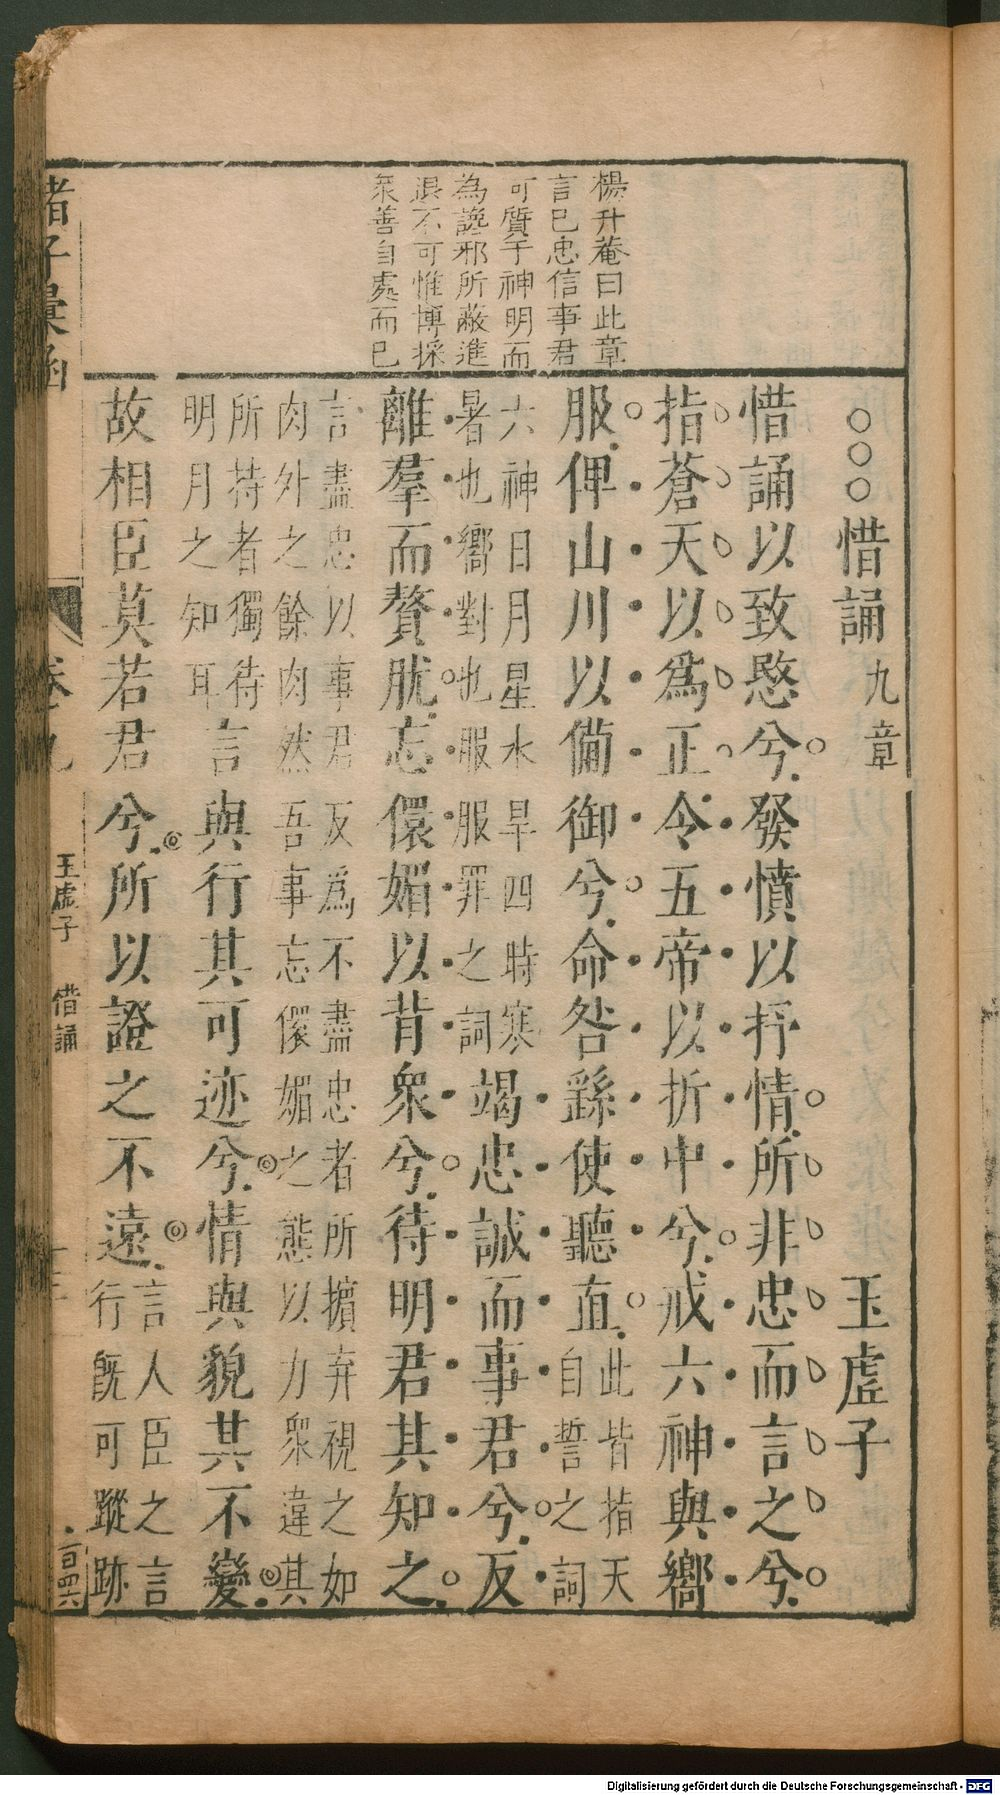 楊升菴曰此章
言已忠信事君
可質于神明而
為讒邪所蔽進
退不可惟博採
衆善自處而已
○○○惜誦九章 玉虛子
惜誦以致愍兮發憤以抒情所非忠而言之兮
指蒼天以爲正令五帝以折中兮戒六神與嚮
服俾山川以備御兮命咎繇使聽直此皆指天
自誓之詞
六神日月星水旱四時寒
暑也嚮對也服服罪之詞竭忠誠而事君兮反
離羣而贅肬忘儇媚以背衆兮待明君其知之
言盡忠以事君反爲不盡忠者所擯弃視之如
肉外之餘肉然吾事忘儇媚之態以力衆違其
所持者獨待
明月之知耳言與行其可迹兮情與貌其不變
故相臣莫若君兮所以證之不遠言人臣之言
行既可蹤跡
諸子彙函
卷九
玉虛子
惜誦
十三
百四六
Digitalisierung gefördert durch die Deutsche Forschungsgemeinschaft - DFG